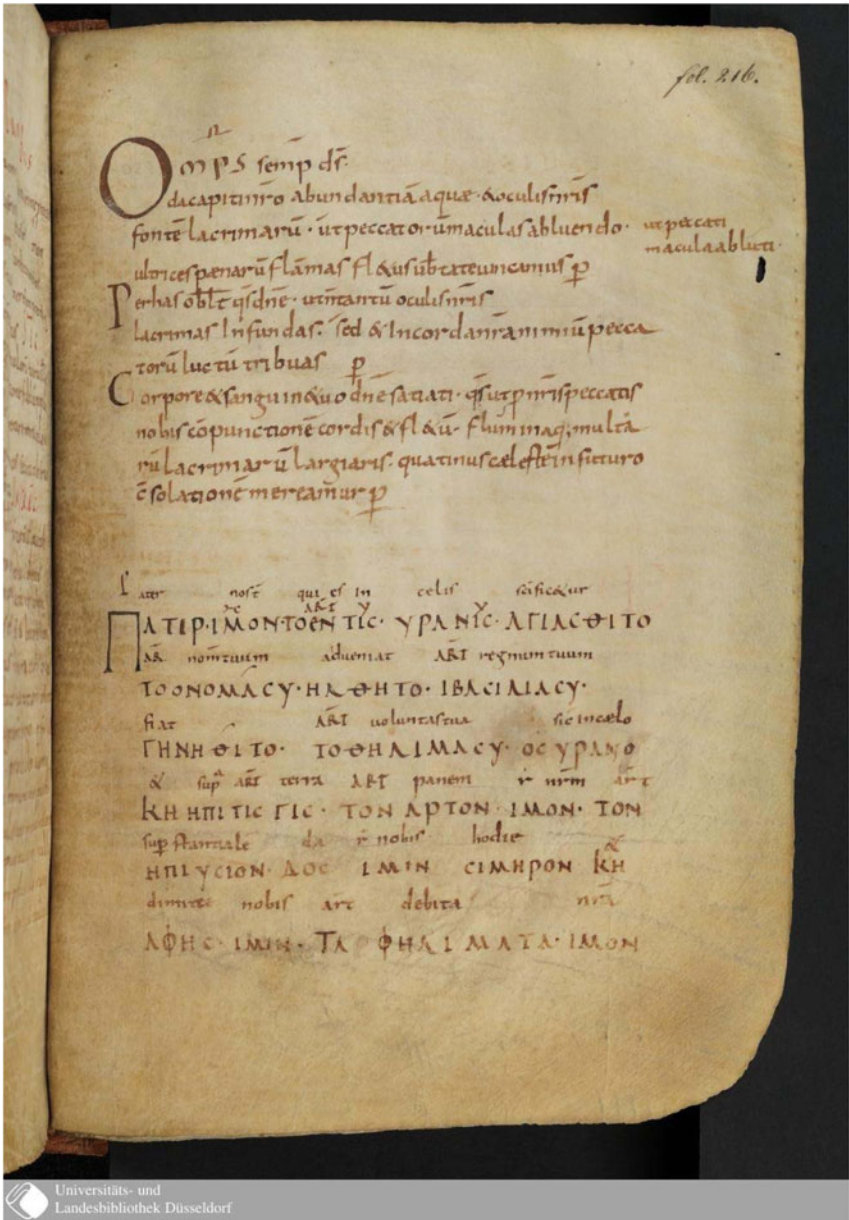 fol. 216.
Omps semp ds̄.
da capiti nr̄o abundantiā aquæ · & oculis nr̄is
fontē lacrimarū · ut peccatorum maculas abluendo ·
ut peccati
macula abluti ·
ultrices pænarū flāmas fl&us ubertate uincamus p̄
Per has obl̄t qs̄ dn̄e · ut n̄ tantū oculis nr̄is
lacrimas Infundas · sed & In corda nr̄a nimiū pecca
torū luctū tribuas p̄
Corpore & sanguine tuo dn̄e satiati · qs̄ ut p nr̄is peccatis
nobis cōpunctionē cordis & fl&ū · fluminaq; multa
rū lacrimarū largiaris · quatinus cælestē in futuro
c̄solationē mereamur p̄
Pater nost̄ qui es in celis sc̄ific&ur
ΠΑΤΙΡ · ΙΜΟΝ · ΤΟ ΕΝ ΤΙC · ΥΡΑΝΙC · ΑΓΙΑCΘΙΤΟ
AR̄ nom̄ tuum adueniat ART regnum tuum
ΤΟ ΟΝΟΜΑ CΥ · ΗΛΘΗΤΟ · Ι ΒΑCΙΛΙΑ CΥ ·
fiat ART uoluntas tua sic in cælo
ΓΗΝΗΘΙΤΟ · ΤΟ ΘΗΛΙΜΑ CΥ · ΟC ΥΡΑΝΟ
& sup̄ ART terra ART panem r̄ nr̄m ar̄t
ΚΗ ΗΠΙ ΤΙC ΓΙC · ΤΟΝ ΑΡΤΟΝ · ΙΜΟΝ · ΤΟΝ
supstantiale da r̄ nobis hodie &
ΗΠΙΥCΙΟΝ · ΔΟC ΙΜΙΝ CΙΜΗΡΟΝ ΚΗ
dimitte nobis art debita nr̄a
ΑΦΗC · ΙΜΙΝ · ΤΑ ΦΗΛΙΜΑΤΑ · ΙΜΟΝ
Universitäts- und
Landesbibliothek Düsseldorf